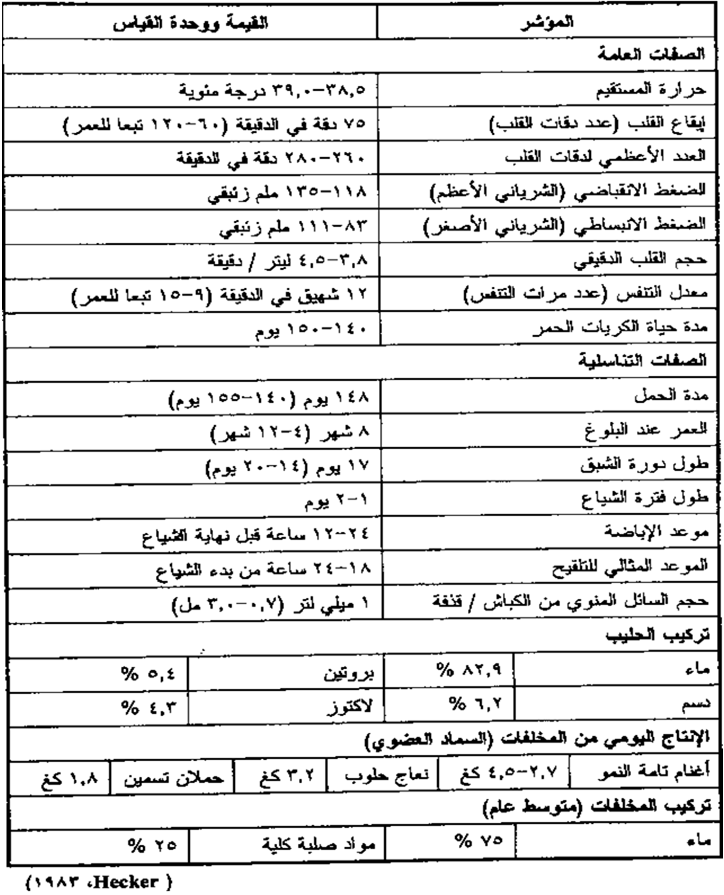 المؤشر القيمة ووحدة القياس
الصفات العامة
حرارة المستقيم ٣٨,٥-٣٩,٠ درجة مئوية
إيقاع القلب (عدد دقات القلب) ٧٥ دقة في الدقيقة (٦٠-١٢٠ تبعا للعمر)
العدد الأعظمي لدقات القلب ٢٦٠-٢٨٠ دقة في الدقيقة
الضغط الانقباضي (الشرياني الأعظم) ١١٨-١٣٥ ملم زئبقي
الضغط الانبساطي (الشرياني الأصغر) ٨٣-١١١ ملم زئبقي
حجم القلب الدقيقي ٣,٨-٤,٥ ليتر / دقيقة
معدل التنفس (عدد مرات التنفس) ١٢ شهيق في الدقيقة (٩-١٥ تبعا للعمر)
مدة حياة الكريات الحمر ١٤٠-١٥٠ يوم
الصفات التناسلية
مدة الحمل ١٤٨ يوم (١٤٠-١٥٥ يوم)
العمر عند البلوغ ٨ شهر (٤-١٢ شهر)
طول دورة الشبق ١٧ يوم (١٤-٢٠ يوم)
طول فترة الشياع ١-٢ يوم
موعد الإباضة ٢٤-١٢ ساعة قبل نهاية الشياع
الموعد المثالي للتلقيح ١٨-٢٤ ساعة من بدء الشياع
حجم السائل المنوي من الكباش / قذفة ١ ميلي لتر (٠,٧-٣,٠ مل)
تركيب الحليب
ماء ٨٢,٩ % بروتين ٥,٤ %
دسم ٦,٢ % لاكتوز ٤,٣ %
الإنتاج اليومي من المخلفات (السماد العضوي)
أغنام تامة النمو ٢,٧-٤,٥ كغ نعاج حلوب ٣,٢ كغ حملان تسمين ١,٨ كغ
تركيب المخلفات (متوسط عام)
ماء ٧٥ % مواد صلبة كلية ٢٥ %
(Hecker، ١٩٨٣)